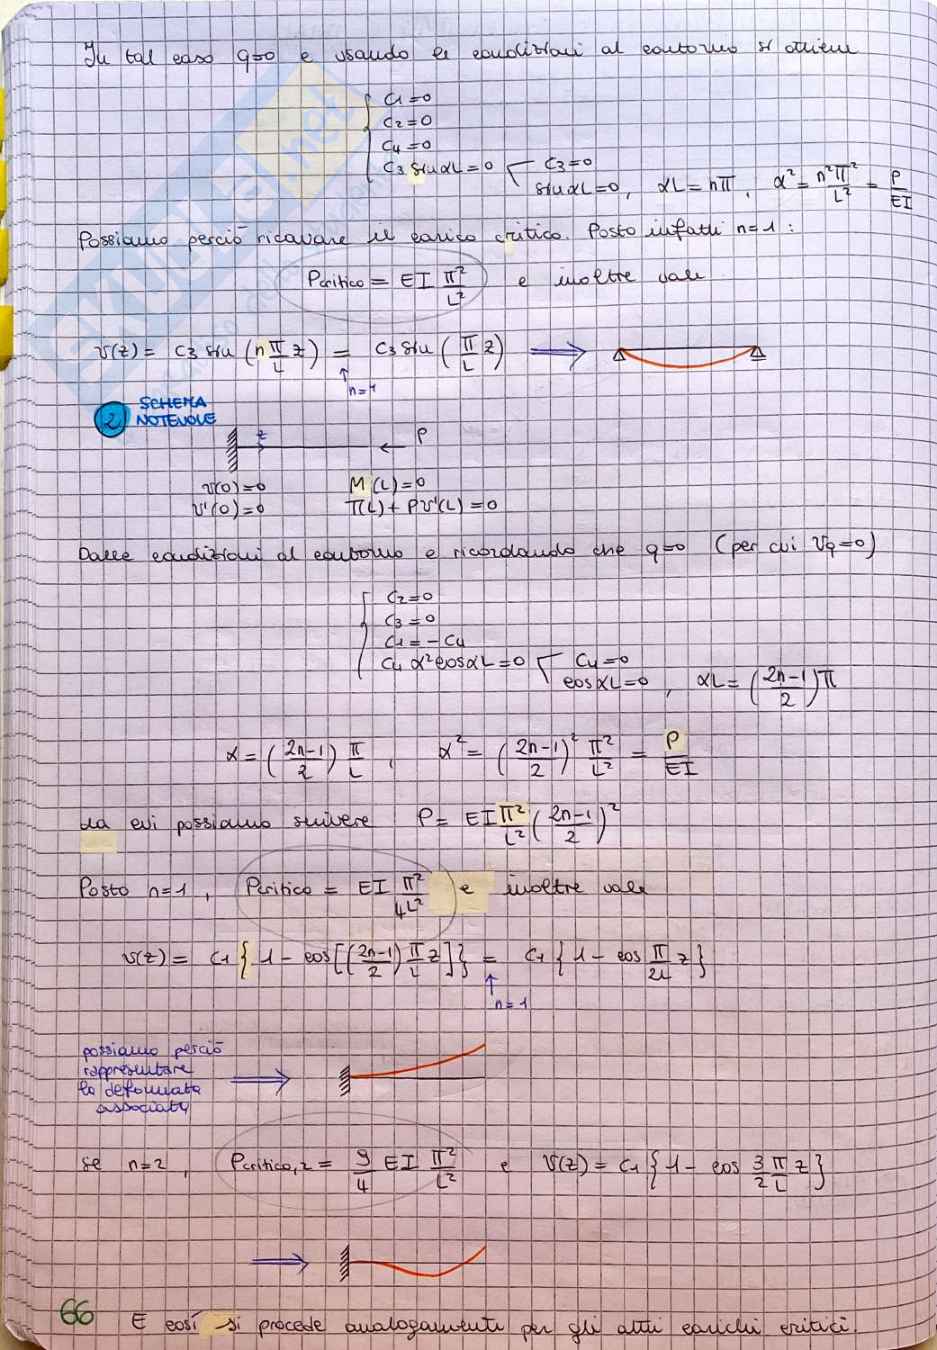 In tal caso q=0 e usando le condizioni al contorno si ottiene
C1=0
C2=0
C4=0
C3 sin αL=0 C3=0
sin αL=0, αL=nπ, α²= n²π²/L² = P/EI
Possiamo perciò ricavare il carico critico. Posto infatti n=1:
Pcritico = EI π²/L² e inoltre vale
v(z)= C3 sin (n π/L z) = C3 sin (π/L z)
n=1
2 SCHEMA
NOTEVOLE
z P
v(0)=0 M(L)=0
v'(0)=0 T(L)+Pv'(L)=0
Dalle condizioni al contorno e ricordando che q=0 (per cui vq=0)
C2=0
C3=0
C1=-C4
C4 α²cos αL=0 C4=0
cos αL=0, αL= (2n-1/2)π
α= (2n-1/2) π/L, α²= (2n-1/2)² π²/L² = P/EI
da cui possiamo scrivere P= EI π²/L² (2n-1/2)²
Posto n=1, Pcritico = EI π²/4L² e inoltre vale
v(z)= C1{1-cos[(2n-1/2) π/L z]} = C1{1-cos π/2L z}
n=1
possiamo perciò
rappresentare
la deformata
associata
se n=2, Pcritico,2 = 9/4 EI π²/L² e v(z)= C1{1-cos 3/2 π/L z}
66 E così si procede analogamente per gli altri carichi critici.